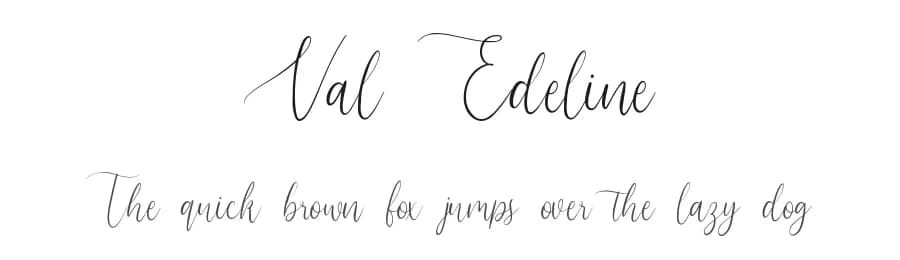 Val Edeline
The quick brown fox jumps over the lazy dog